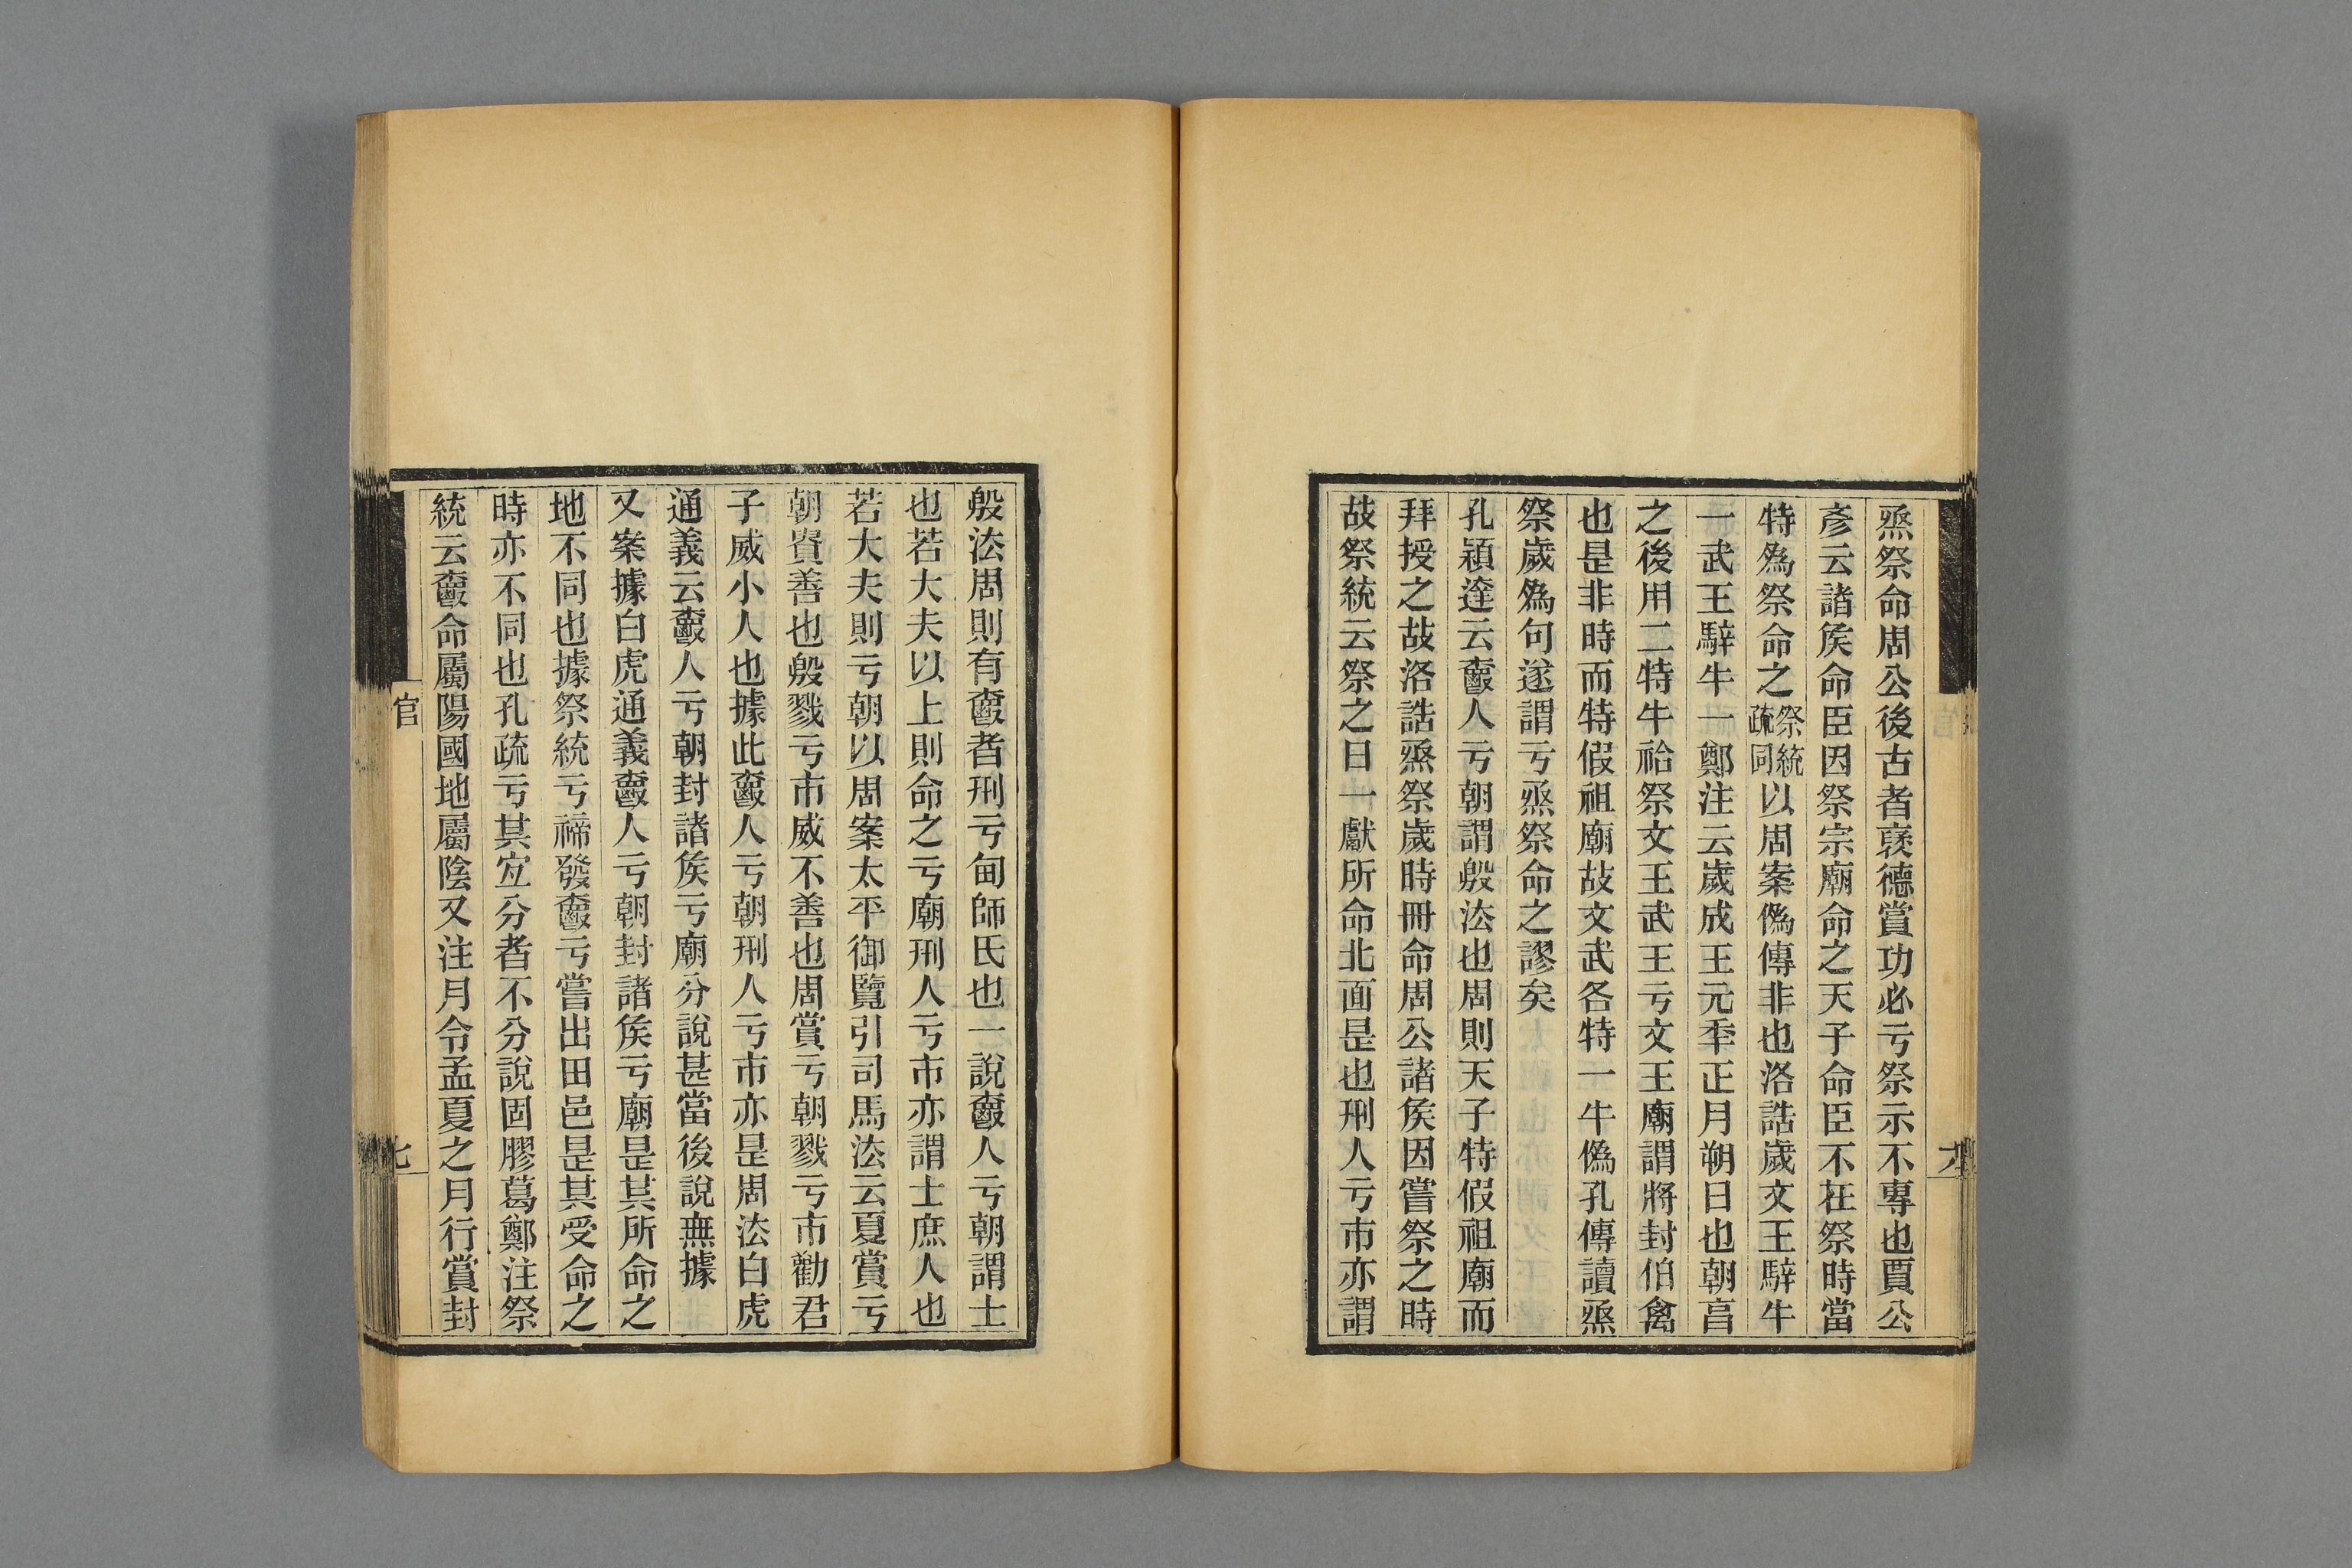 烝祭命周公後古者襃德賞功必亏祭示不專也賈公
彥云諸矦命臣因祭宗廟命之天子命臣不在祭時當
特爲祭命之祭統疏同以周案僞傳非也洛誥歲文王騂牛
一武王騂牛一鄭注云歲成王元秊正月朔日也朝亯
之後用二特牛祫祭文王武王亏文王廟謂將封伯禽
也是非時而特假祖廟故文武各特一牛僞孔傳讀烝
祭歲爲句遂謂亏烝祭命之謬矣
孔穎達云𤕤人亏朝謂殷法也周則天子特假祖廟而
拜授之故洛誥烝祭歲時冊命周公諸矦因嘗祭之時
故祭統云祭之日一獻所命北面是也刑人亏市亦謂
殷法周則有𤕤者刑亏甸師氏也一說𤕤人亏朝謂士
也若大夫以上則命之亏廟刑人亏市亦謂士庶人也
若大夫則亏朝以周案太平御覽引司馬法云夏賞亏
朝賞善也殷戮亏市威不善也周賞亏朝戮亏市勸君
子威小人也據此𤕤人亏朝刑人亏市亦是周法白虎
通義云𤕤人亏朝封諸矦亏廟分說甚當後說無據
又案據白虎通義𤕤人亏朝封諸矦亏廟是其所命之
地不同也據祭統亏禘發𤕤亏嘗出田邑是其受命之
時亦不同也孔疏亏其宜分者不分說固膠葛鄭注祭
統云𤕤命屬陽國地屬陰又注月令孟夏之月行賞封
官
七
六